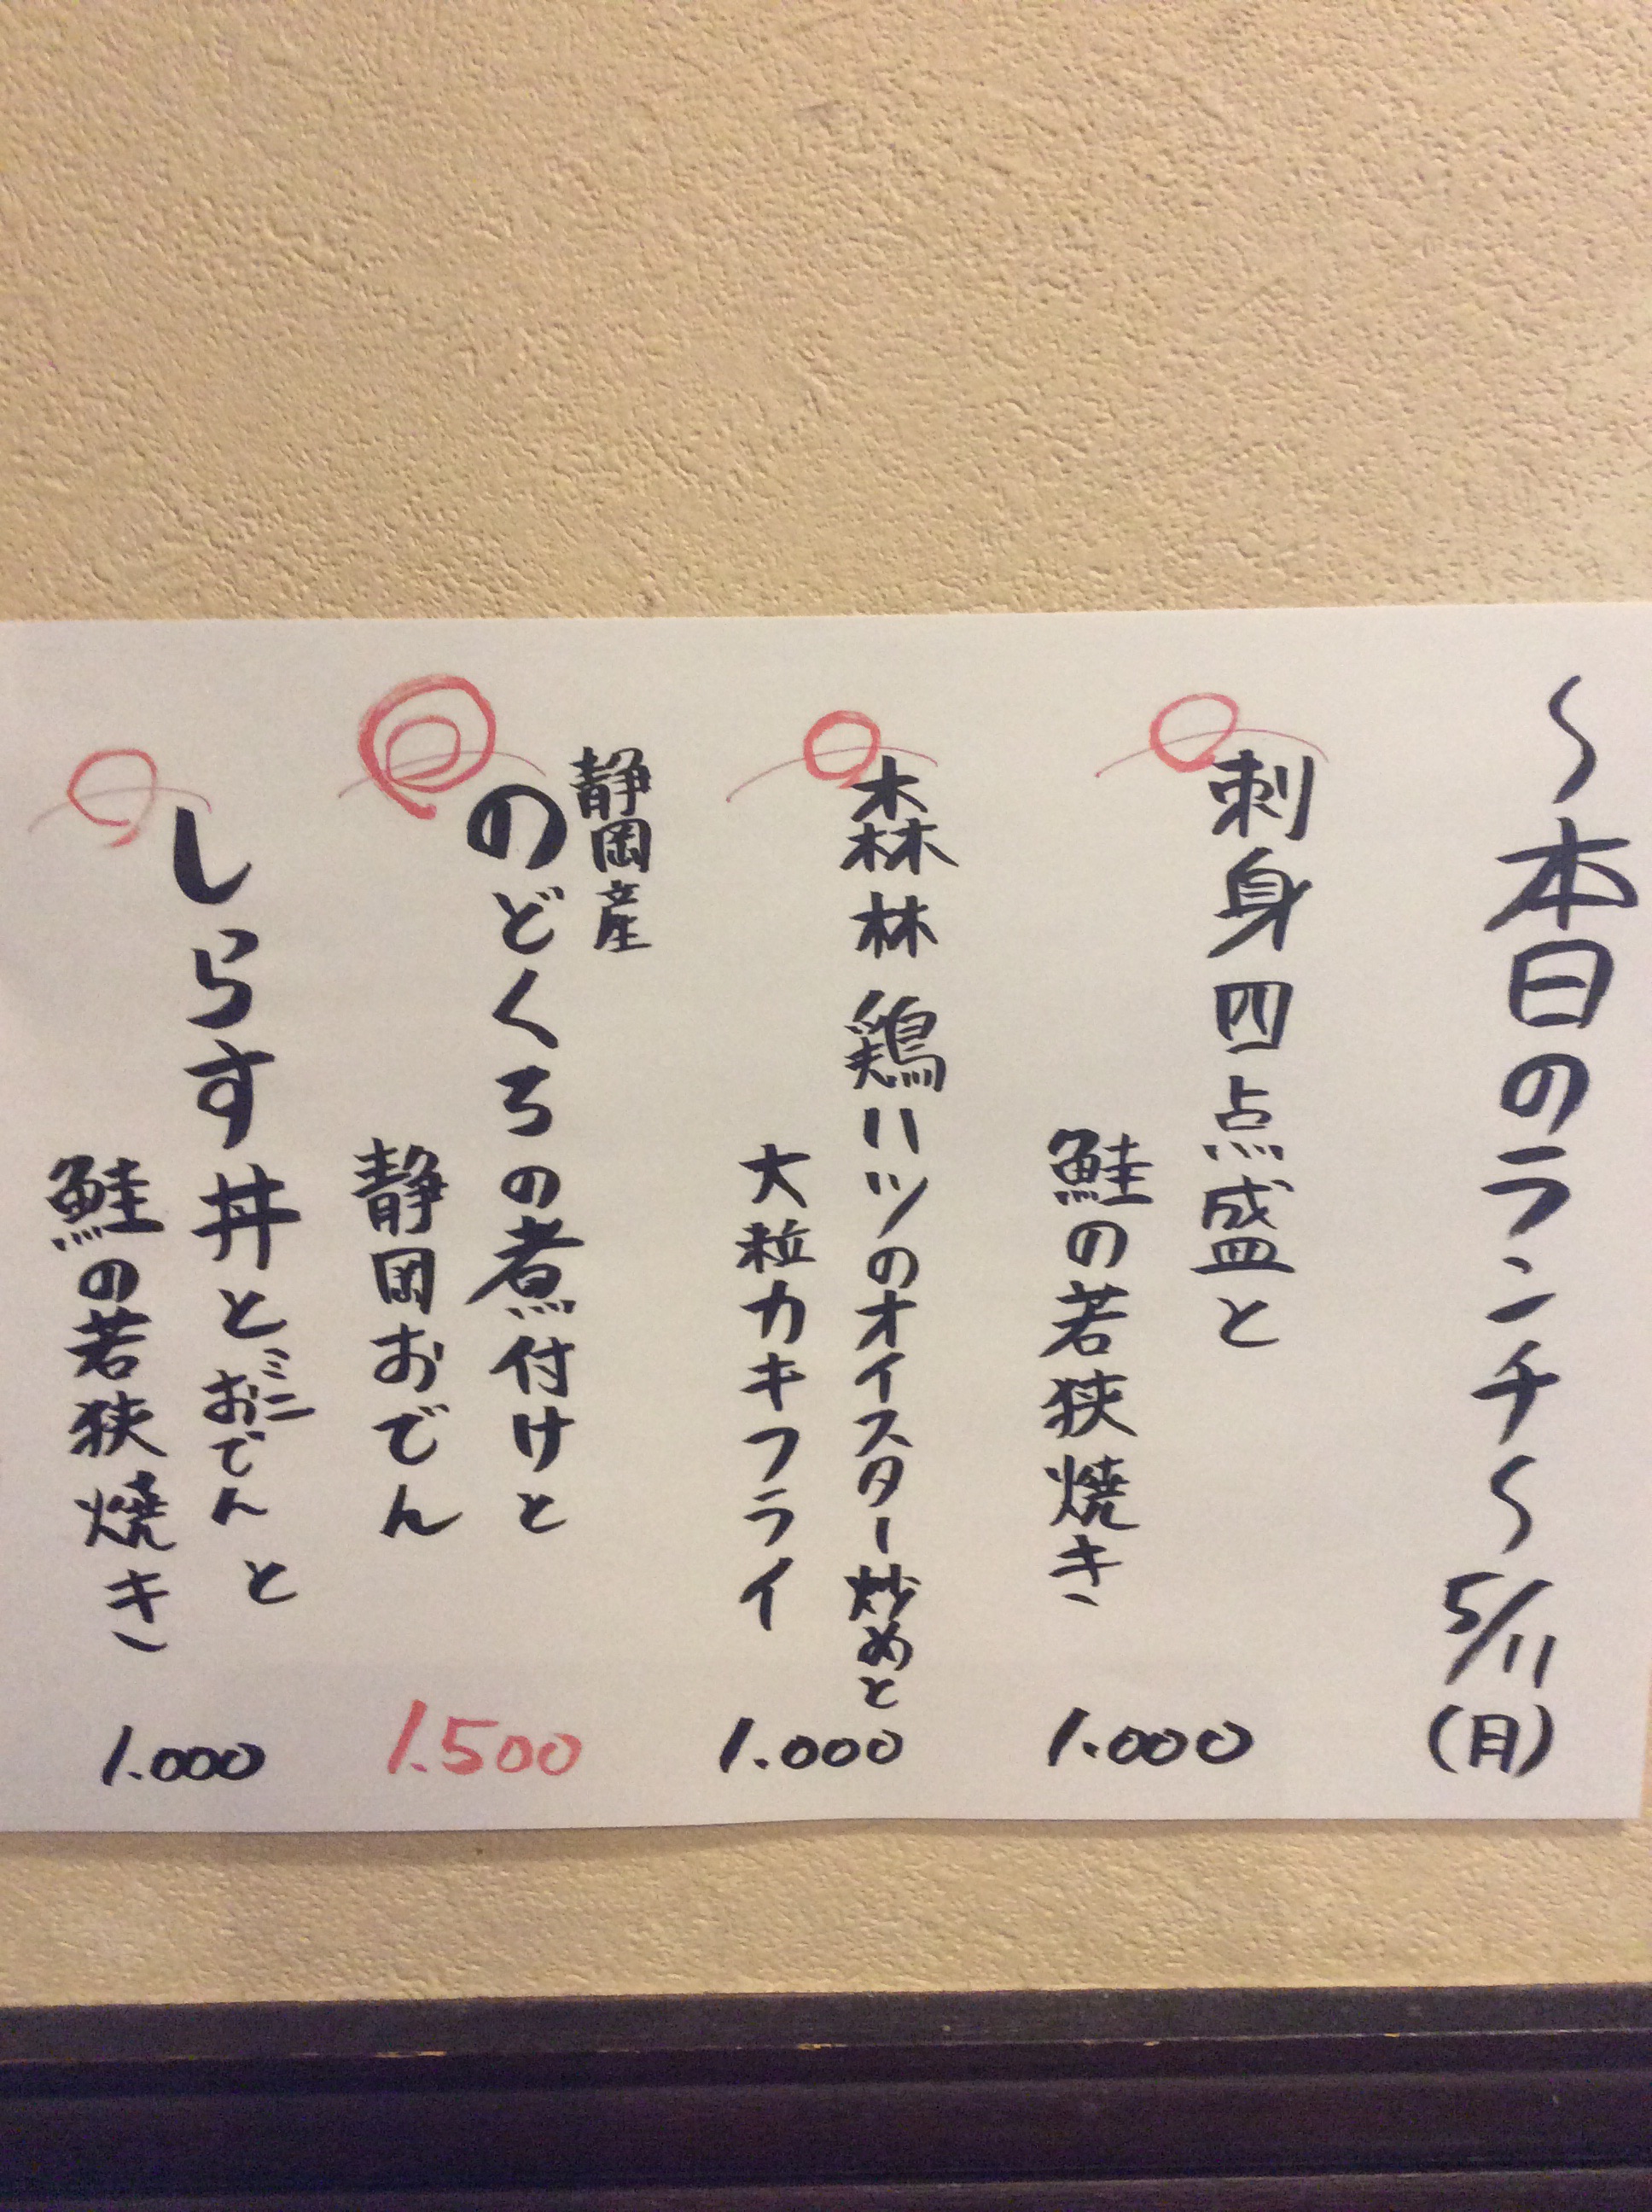 〜本日のランチ〜 5/11(月)
刺身四点盛と
鮭の若狭焼き
1.000
森林鶏ハツのオイスター炒めと
大粒カキフライ
1.000
静岡産
のどくろの煮付けと
静岡おでん
1.500
しらす丼とミニおでんと
鮭の若狭焼き
1.000